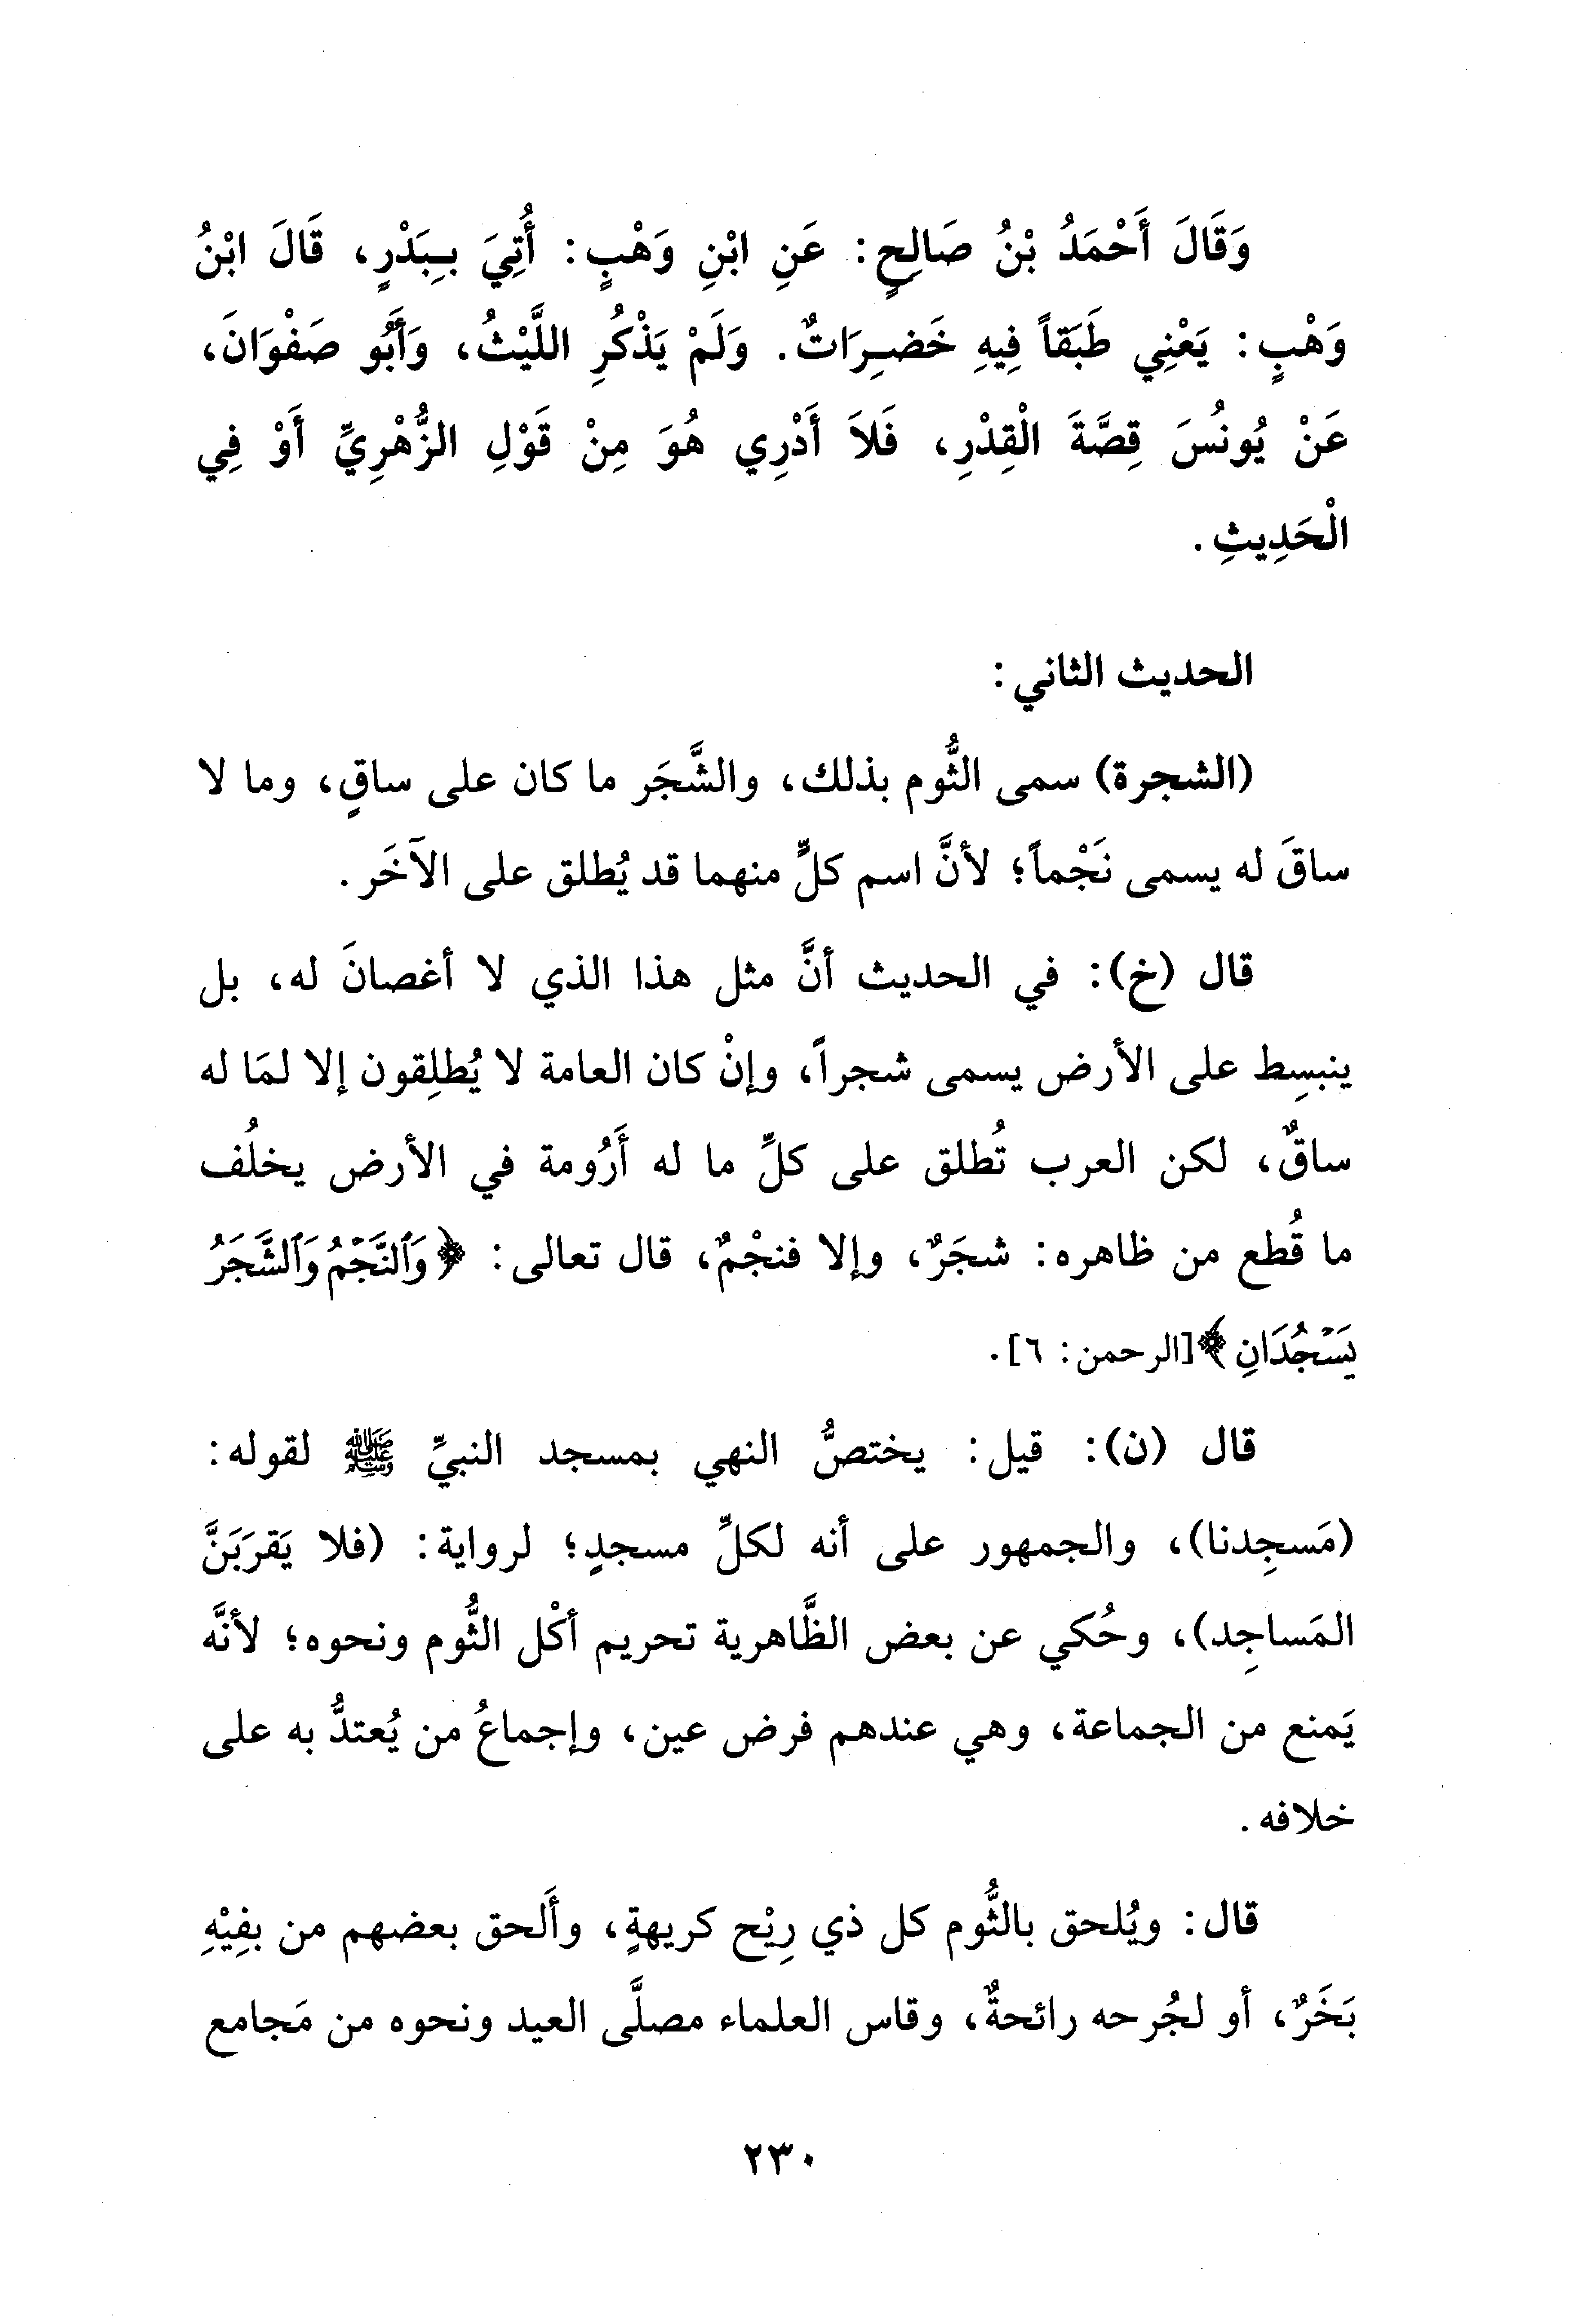 وَقَالَ أَحْمَدُ بْنُ صَالِحٍ: عَنِ ابْنِ وَهْبٍ: أُتِيَ بِبَدْرٍ، قَالَ ابْنُ
وَهْبٍ: يَعْنِي طَبَقاً فِيهِ خَضِرَاتٌ. وَلَمْ يَذْكُرِ اللَّيْثُ، وَأَبُو صَفْوَانَ،
عَنْ يُونُسَ قِصَّةَ الْقِدْرِ، فَلاَ أَدْرِي هُوَ مِنْ قَوْلِ الزُّهْرِيِّ أَوْ فِي
الْحَدِيثِ.
الحديث الثاني:
(الشجرة) سمى الثُّوم بذلك، والشَّجَر ما كان على ساقٍ، وما لا
ساقَ له يسمى نَجْماً؛ لأنَّ اسم كلٍّ منهما قد يُطلق على الآخَر.
قال (خ): في الحديث أنَّ مثل هذا الذي لا أغصانَ له، بل
ينبسِط على الأرض يسمى شجراً، وإنْ كان العامة لا يُطلِقون إلا لمَا له
ساقٌ، لكن العرب تُطلق على كلِّ ما له أَرُومة في الأرض يخلُف
ما قُطع من ظاهره: شجَرٌ، وإلا فنجْمٌ، قال تعالى: ﴿وَٱلنَّجْمُ وَٱلشَّجَرُ
يَسْجُدَانِ﴾[الرحمن: ٦].
قال (ن): قيل: يختصُّ النهي بمسجد النبيِّ ﷺ لقوله:
(مَسجِدنا)، والجمهور على أنه لكلِّ مسجدٍ؛ لرواية: (فلا يَقرَبَنَّ
المَساجِد)، وحُكي عن بعض الظَّاهرية تحريم أكْل الثُّوم ونحوه؛ لأنَّه
يَمنع من الجماعة، وهي عندهم فرض عين، وإجماعُ من يُعتدُّ به على
خلافه.
قال: ويُلحق بالثُّوم كل ذي رِيْح كريهةٍ، وأَلحق بعضهم من بفِيْهِ
بَخَرٌ، أو لجُرحه رائحةٌ، وقاس العلماء مصلَّى العيد ونحوه من مَجامع
٢٣٠